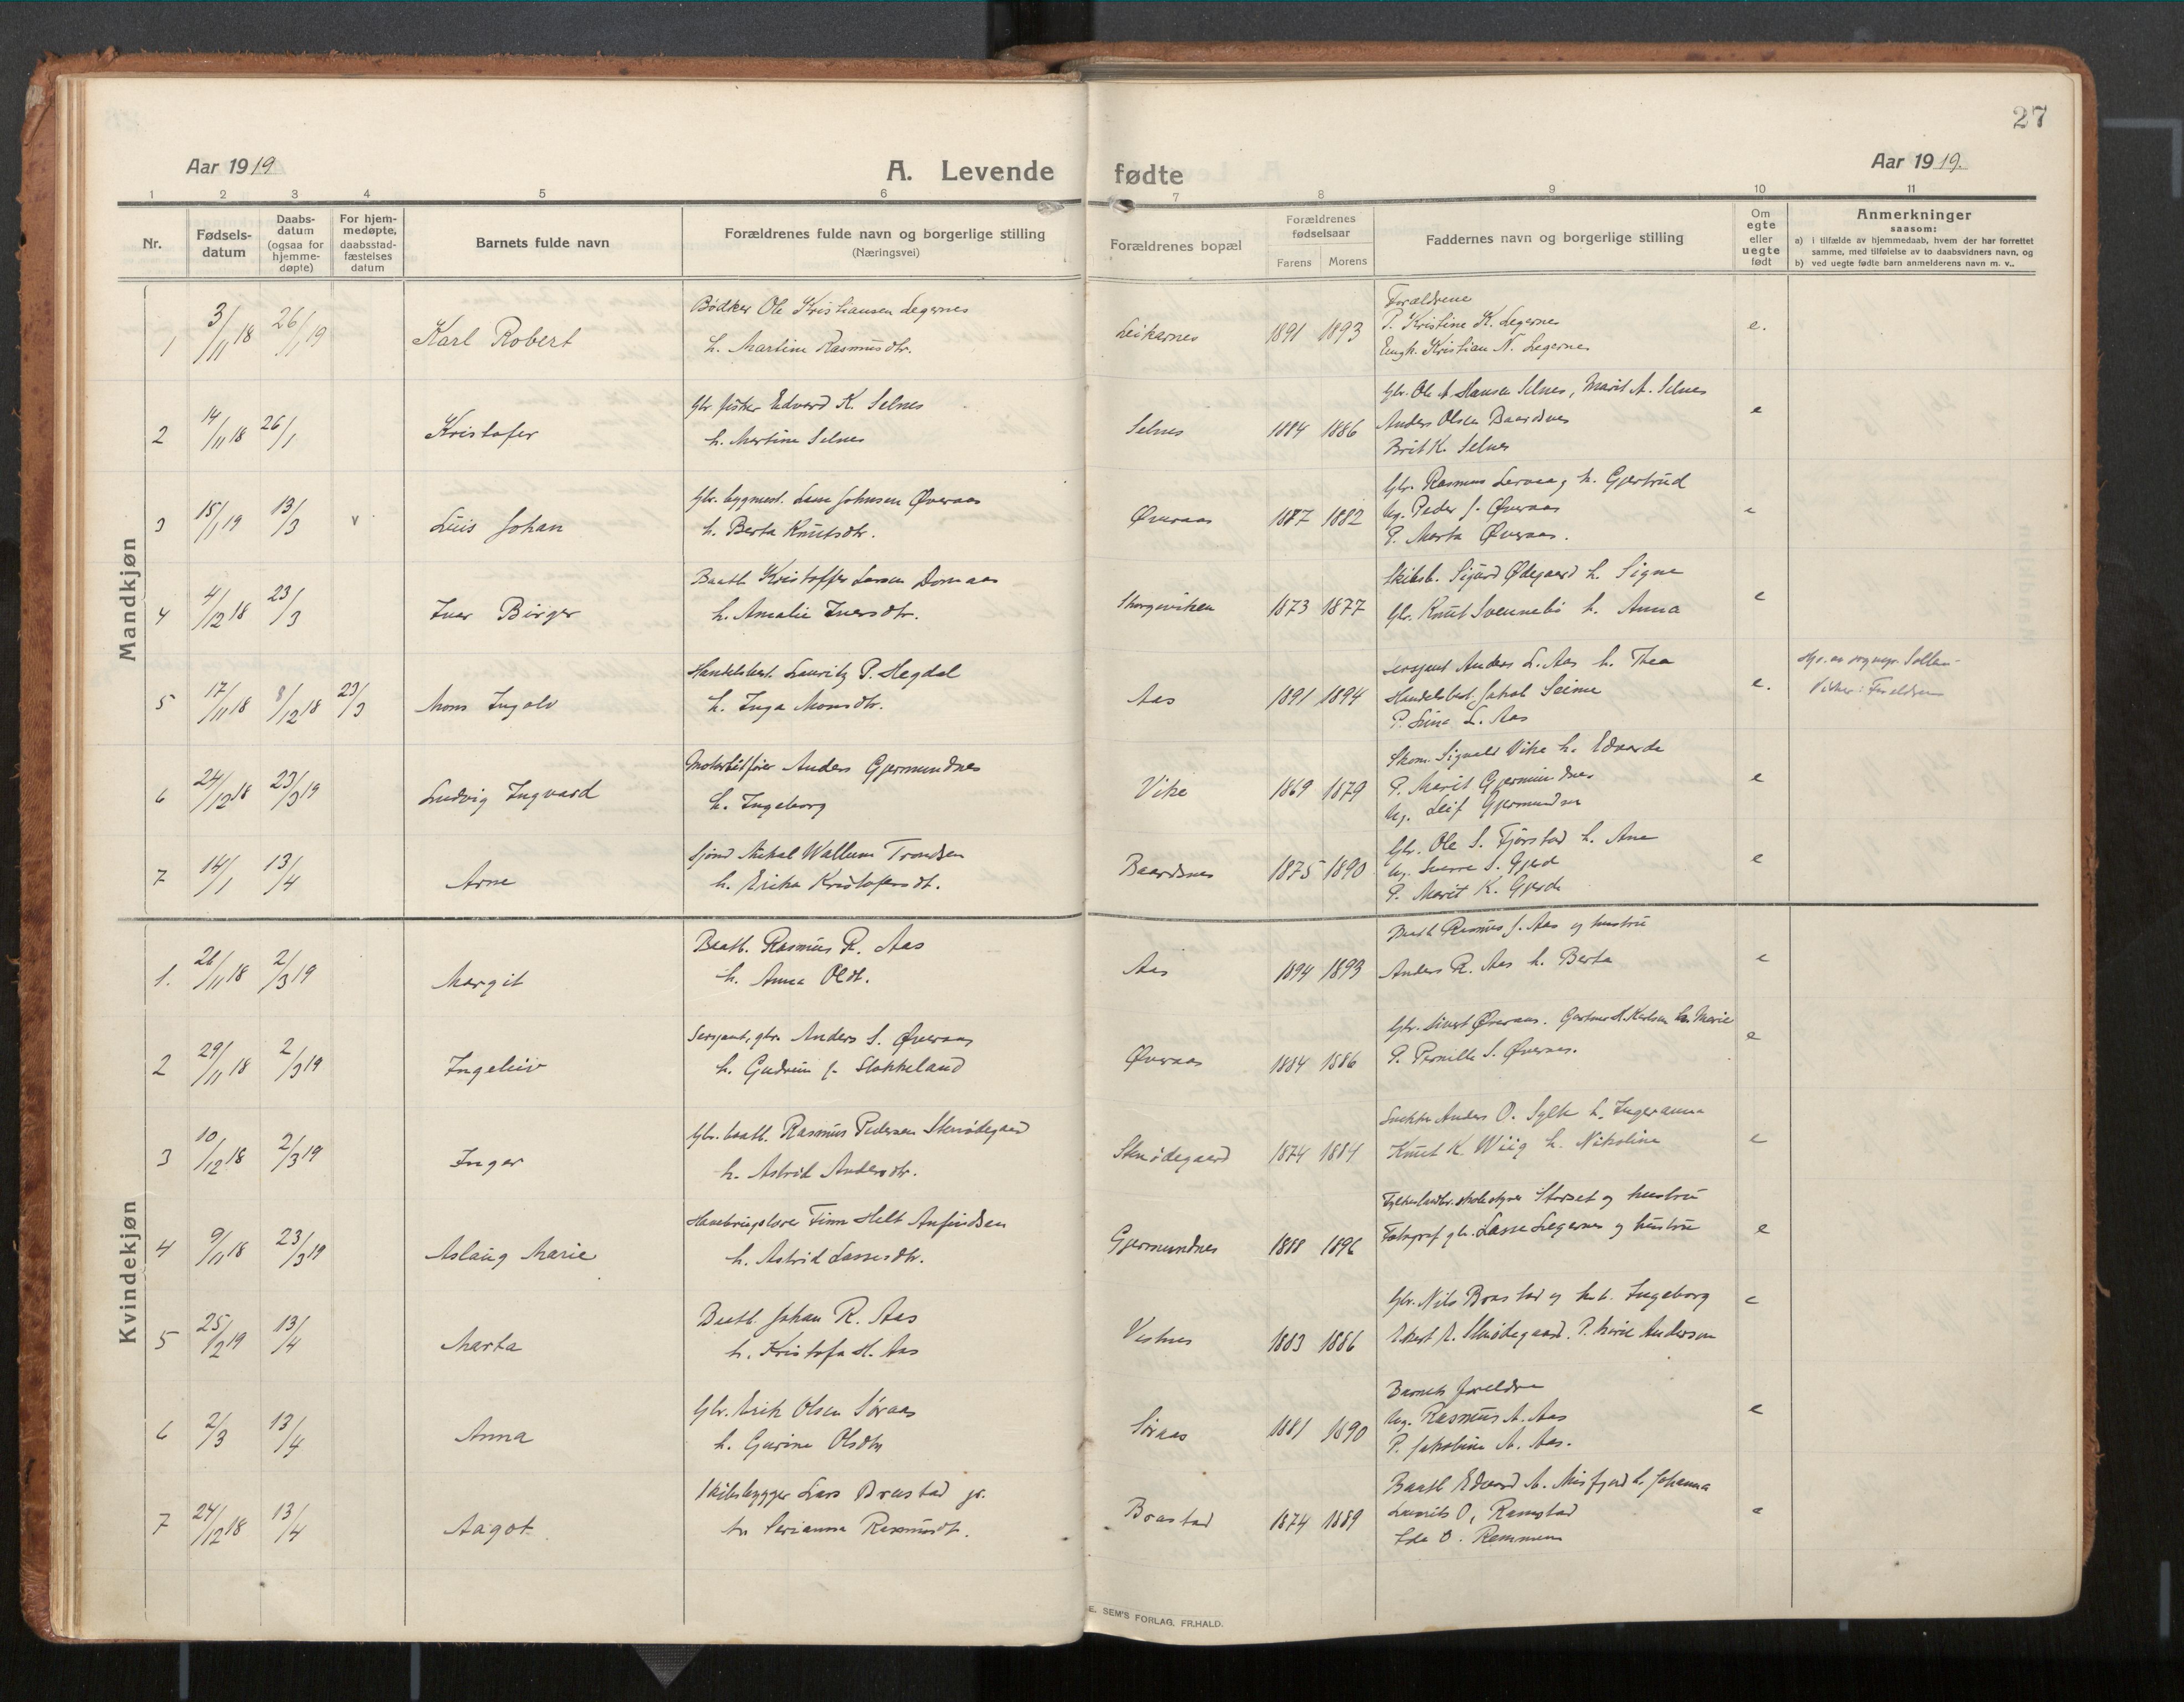 27
Aar 1919
A. Levende fødte
Aar 1919.
1 2 3 4 5 6 7 8 9 10 11
Nr.
Fødsels-
datum
Daabs-
datum
(ogsaa for
hjemme-
døpte)
For hjem-
medøpte,
daabsstad-
fæstelses
datum
Barnets fulde navn
Forældrenes fulde navn og borgerlige stilling
(Næringsvei)
Forældrenes bopæl
Forældrenes
fødselsaar
Farens Morens
Faddernes navn og borgerlige stilling
Om
egte
eller
uegte
født
Anmerkninger
saasom:
a) i tilfælde av hjemmedaab, hvem der har forrettet
samme, med tilføielse av to daabsvidners navn, og
b) ved uegte fødte barn anmelderens navn m. v..
Mandkjøn
1 3/11 18 26/1 19 Karl Robert
Bødker Ole Kristiansen Legernes
h. Martine Rasmusdtr.
Leikarnes 1891 1893
Forældrene
P. Kristine K. Legernes
Kristian N. Legernes
e.
2 14/11 18 26/1 Kristofer
Gbr fisker Edvard K. Selnes
h. Martine Selnes
Selnes 1884 1886
Gbr. Ole A Hansen Selnes, Marit A. Selnes
Anders Olsen Baardsnes
Brit K. Selnes
e
3 15/1 19 13/3 v Luis Johan
Gbr. bygmest. Lars Johnsen Øveraas
h. Berta Knutsdtr.
Øveraas 1887 1882
Gbr. Rasmus Lervaag h. Gjertrud
Ug. Peder J. Øveraas
P. Marta Øveraas.
e
4 4/12 18 23/3 Ivar Birger
Baatb. Kristoffer Larsen Dornaas
h. Amalie Iversdtr.
Skorgeviken 1873 1877
Skibsb. Sigurd Ødegaard h. Signe
Gbr. Knut Svennebø h. Anna
e
5 17/11 18 8/12 18 23/3 Mons Ingolv
Handelsbest. Lauritz P. Hegdal
h. Inga Monsdtr.
Aas 1891 1894
Sersjant Anders L. Aas h. Thea
Handelsbest. Jakob Seime
P. Lina L. Aas
e.
6 24/12 18 23/3 19 Ludvig Ingvard
Anders Gjermundnes
h. Ingeborg
Vike 1869 1879
Skom. Sigvald Vike h. Edvarda
P. Marit Gjermundnes
Ug. Leif Gjermundnes
e
7 14/1 13/4 Arne
Sjømd Mikal Wallum Trondsen
h. Erika Kristofersdt.
Baardsnes 1875 1890
Gbr. Ole S. Fjørstad h. Ane
Ug. Sverre S. Gjerd
P. Marit K. Gjerde
e
Kvindekjøn
1. 26/11 18 2/3 19 Margit
Baatb. Rasmus R. Aas
h. Anna Oldt.
Aas 1894 1893
Baatb Rasmus J. Aas og hustru
Anders R. Aas h. Berta
e
2 29/11 18 2/3 19 Ingeliiv
Sersjant, gbr. Anders S. Øveraas
h. Gudrun J. Stokkeland
Øveraas 1884 1886
Gbr. Sivert Øveraas. Gartner H. Karlsen h. Marie
P. Pernille S. Øveraas.
e
3 10/12 18 2/3 19 Inger
Gbr. baatb. Rasmus Pedersen Stenødegaard
h. Astrid Andersdtr.
Stenødegaard 1874 1884
Snekker Anders O. Sylte h. Ingeranna
Knut K. Wiig h. Nikoline
e
4 9/11 18 23/3 19 Aslaug Marie
Havebrugslærer Finn Helt Anfindsen
h. Astrid Lassesdtr.
Gjermundnes 1888 1896
Storset og hustru
Fotograf gbr. Lasse Legernes og hustru
e
5 25/2 19 13/4 Marta
Baatb. Johan R. Aas
h. Kristofa H. Aas
Vestnes 1883 1886
Gbr. Nils Brastad og h. Ingeborg
Stenødegaard. P. Andersen
e
6 2/3 13/4 Anna
Gbr. Erik Olsen Søraas
h. Gurine Olsdtr
Søraas 1881 1890
Barnets foreldre
Ug. Rasmus A. Aas
P. Jakobine A. Aas.
e
7 24/12 18 13/4 Aagot
Skibsbygger Lars Brastad jr.
h. Serianna Rasmusdt.
Brastad 1874 1889
Baatb Edvard A. Misfjord h. Johanna
Laurits O. Ramstad
Ida O. Remmem
e
E. SEM'S FORLAG, FR.HALD.